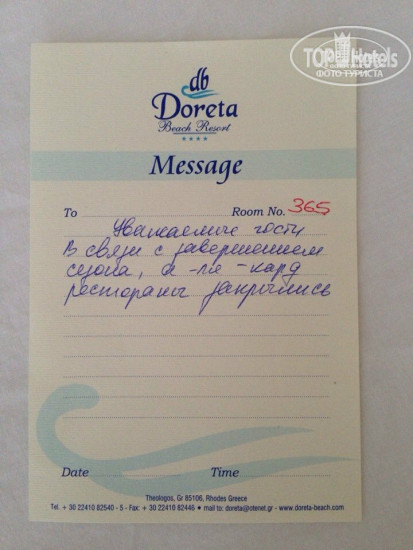 TOPHotels
ФОТО ТУРИСТА
db
Doreta
Beach Resort
★★★★
Message
To Room No. 365
Уважаемые гости
В связи с завершением
сезона, а-ля-кард
рестораны закрылись
Date Time
Theologos, Gr 85106, Rhodes Greece
Tel. + 30 22410 82540 - 5 - Fax: + 30 22410 82446 • mail to: doreta@otenet.gr - www.doreta-beach.com